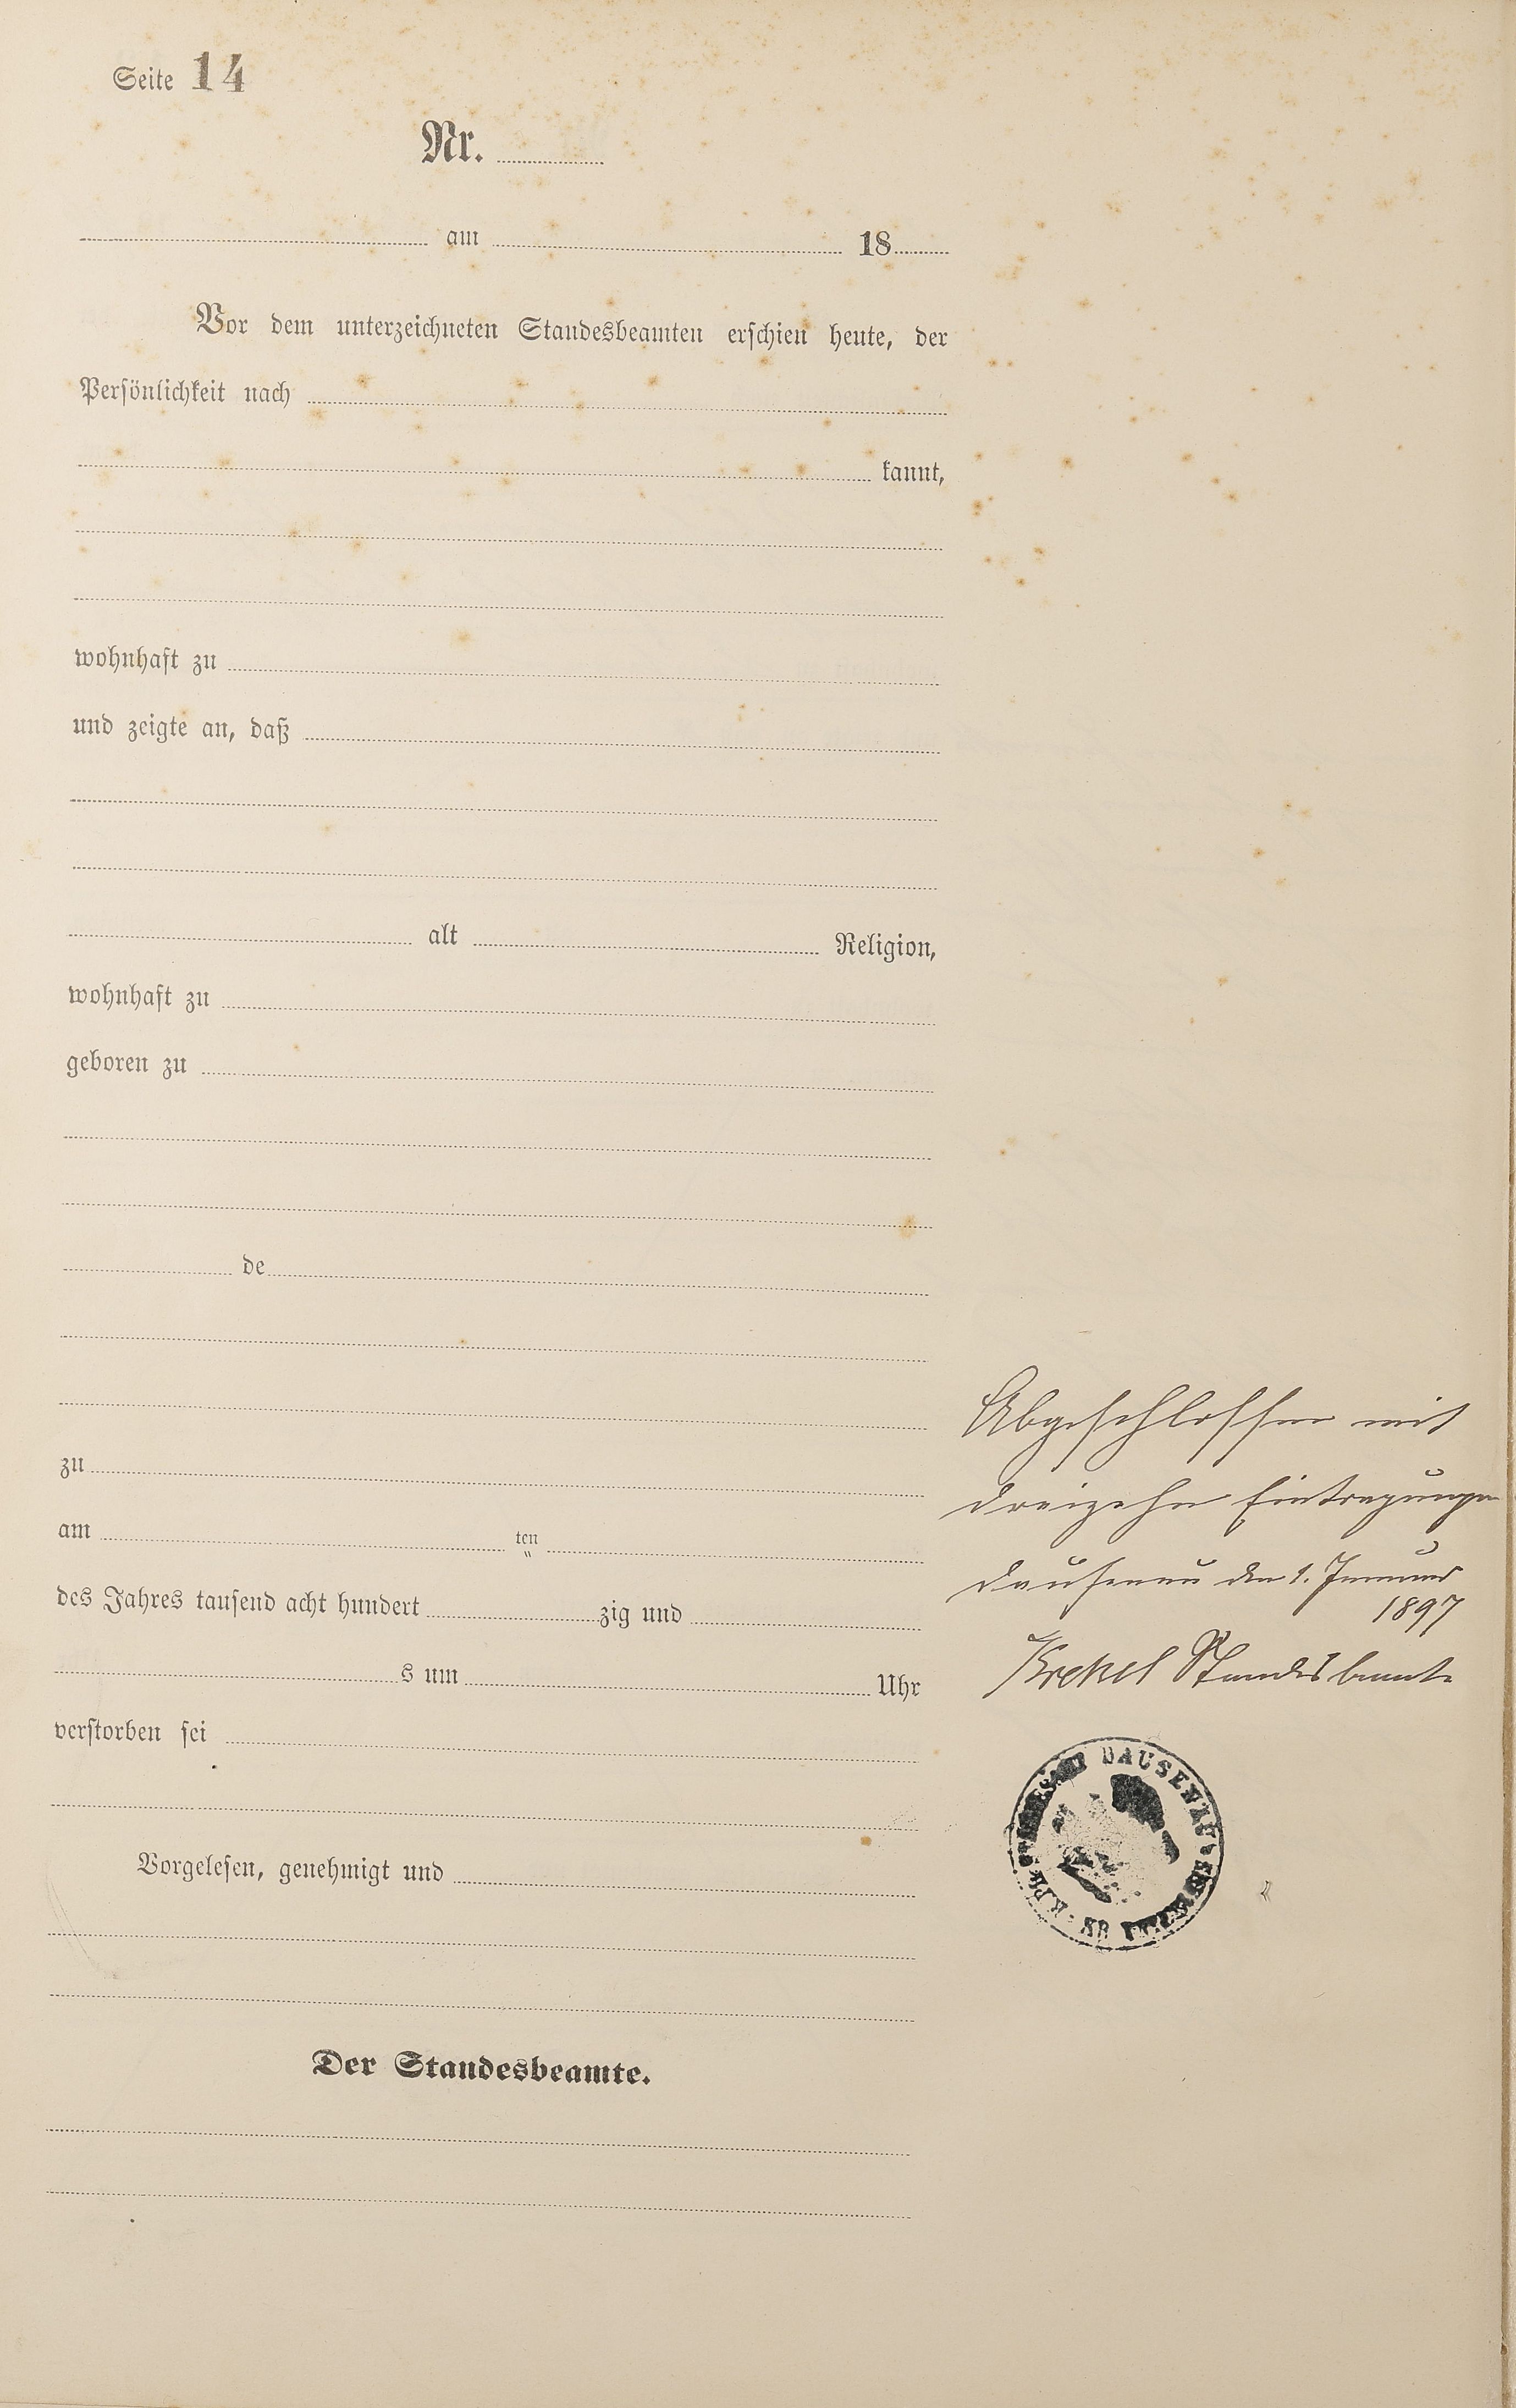 Seite 14
Nr.
am 18
Vor dem unterzeichneten Standesbeamten erschien heute, der
Persönlichkeit nach
kannt,
wohnhaft zu
und zeigte an, daß
alt Religion,
wohnhaft zu
geboren zu
de
zu
am ten
des Jahres tausend acht hundert zig und
s um Uhr
verstorben sei
Vorgelesen, genehmigt und
Der Standesbeamte.
Abgeschlossen mit
dreizehn Eintragungen
Dausenau den 1. Januar
1897
Krekel Standesbeamte
DAUSENAU